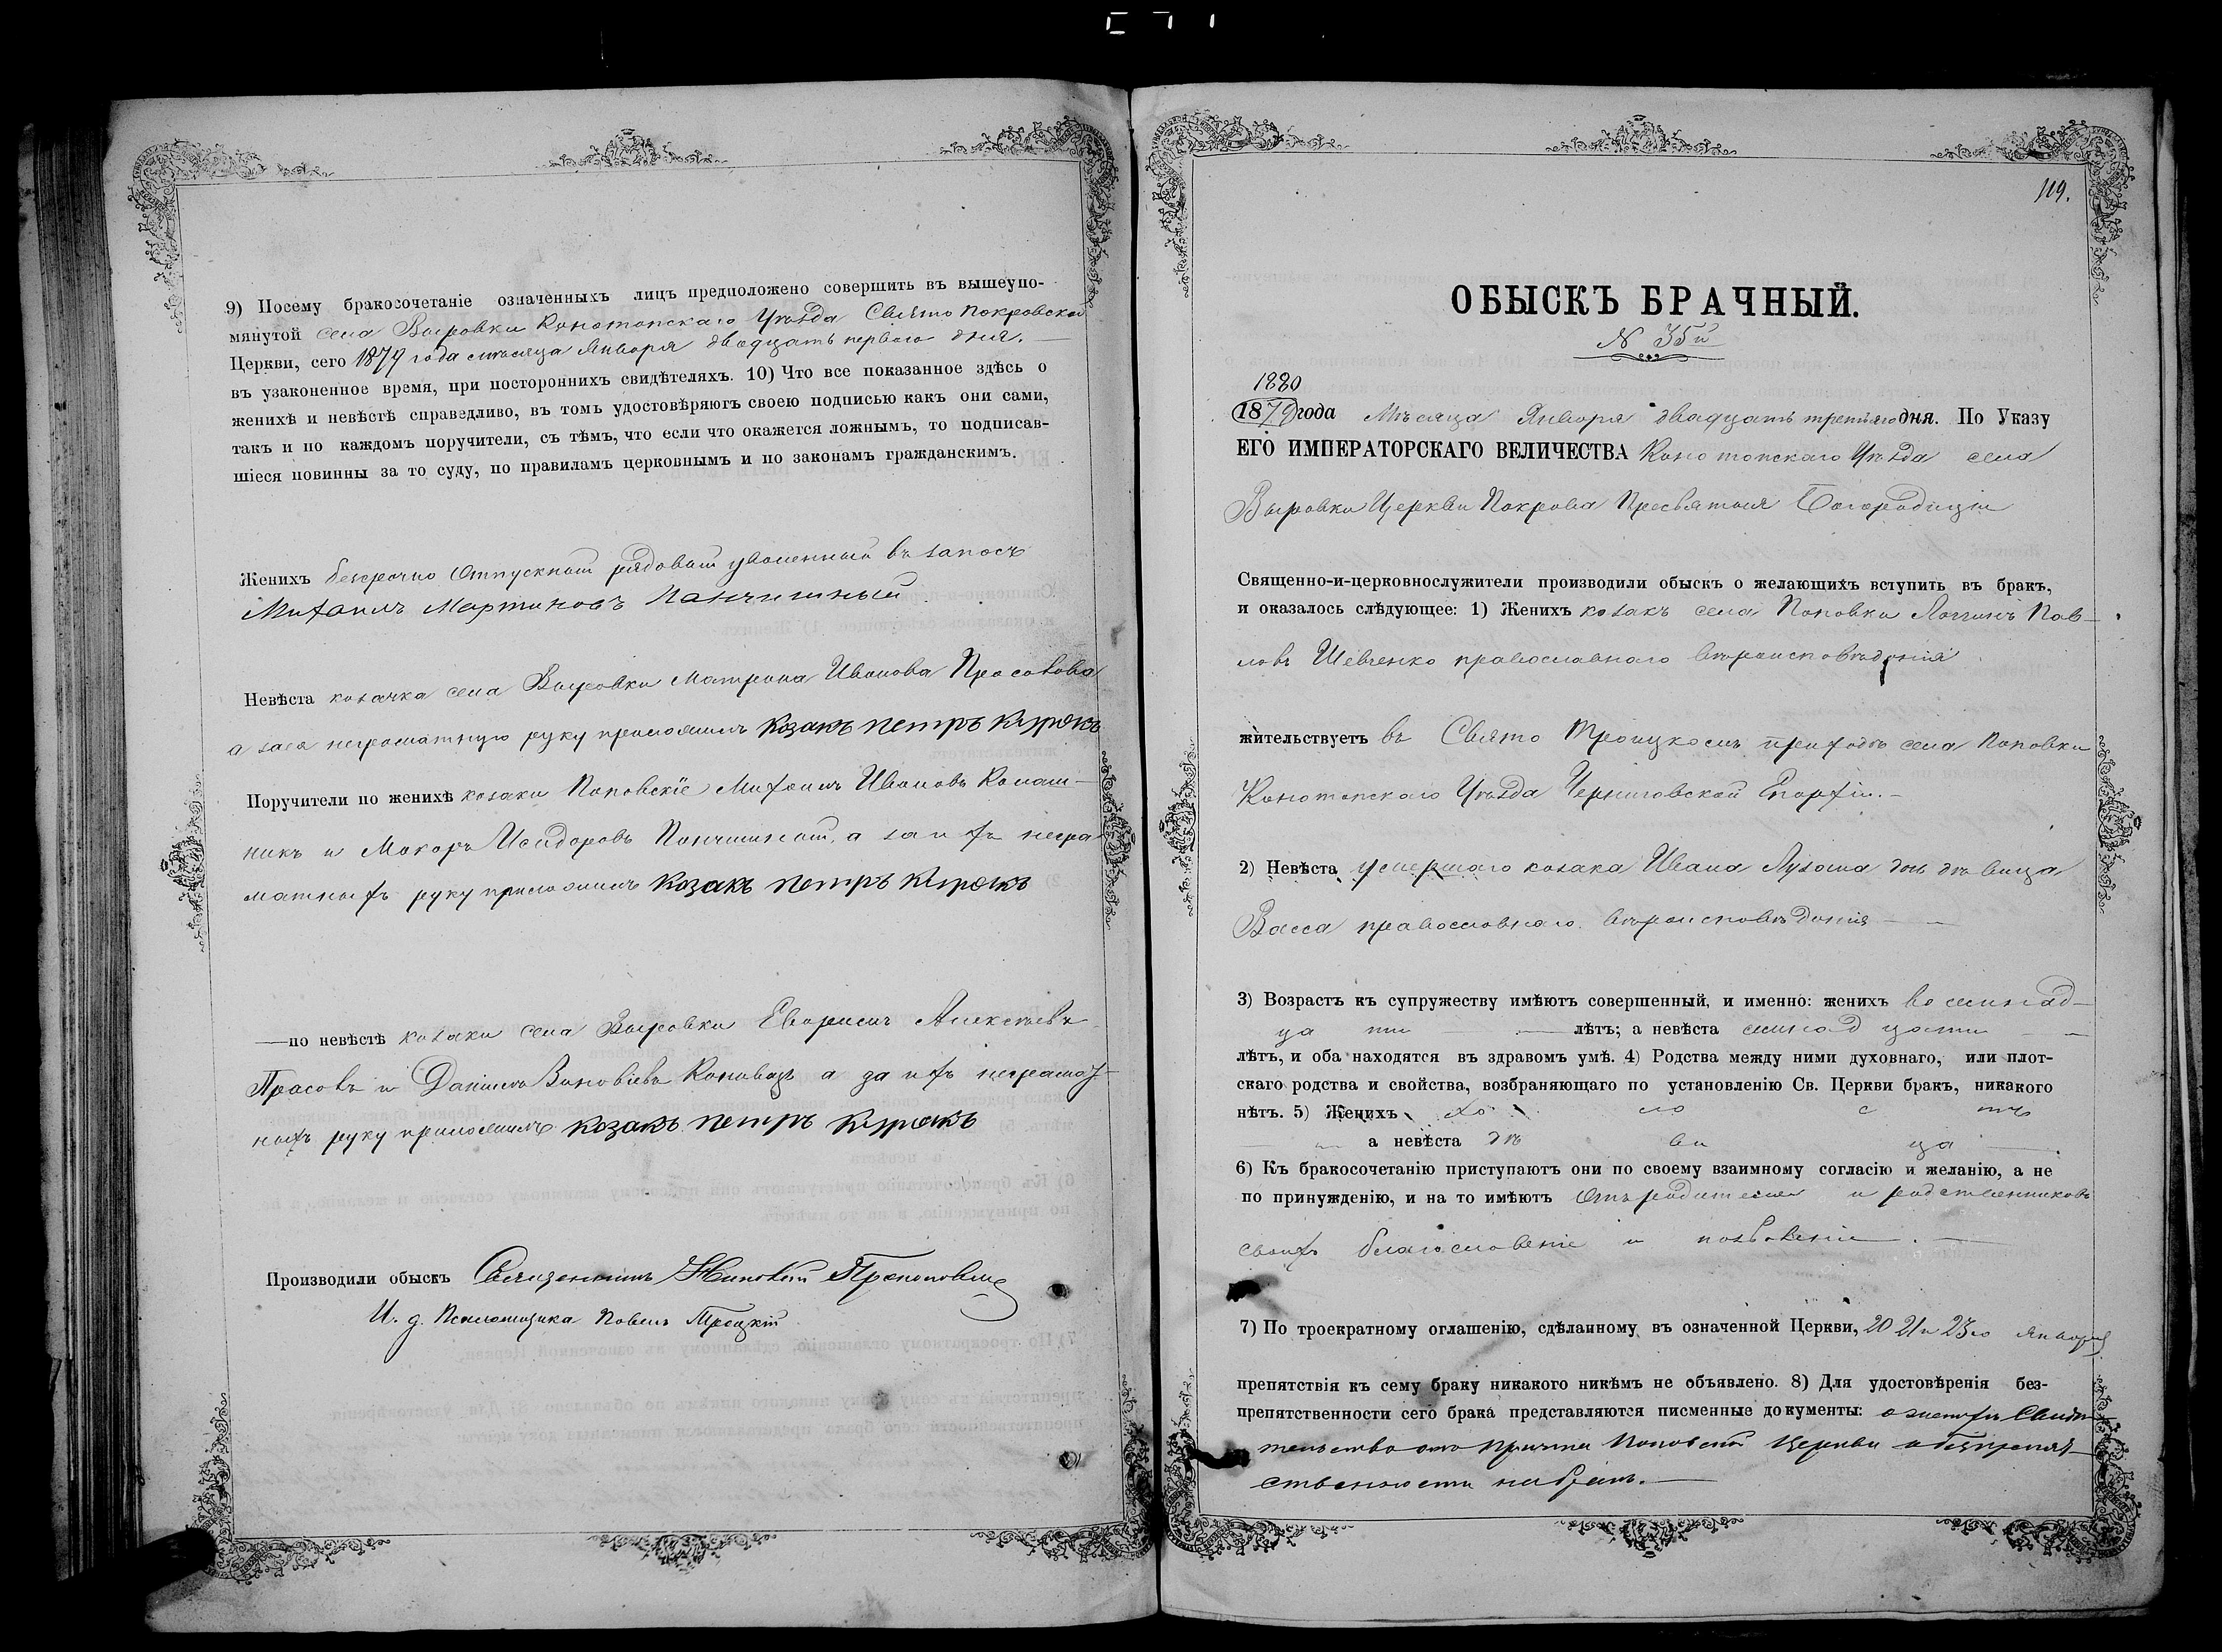 9) Посему бракосочетаніе означенныхъ лицъ предположено совершить въ вышеупо-
мянутой села Выровки Конотопскаго Уѣзда Свято Покровской
Церкви, сего 1879 года мѣсяца Января двадцать перваго дня.
въ узаконенное время, при постороннихъ свидѣтеляхъ. 10) Что все показанное здѣсь о
женихѣ и невѣстѣ справедливо, въ томъ удостовѣряютъ своею подписью какъ они сами,
такъ и по каждомъ поручители, съ тѣмъ, что если что окажется ложнымъ, то подписав-
шіеся повинны за то суду, по правиламъ церковнымъ и по законамъ гражданскимъ.
Женихъ безсрочно отпускной рядовой уволенный въ запасъ
Михаилъ Мартиновъ Панчишный
Невѣста козачка села Выровки Матрона Иванова
а за ея неграматную руку приложилъ Козакъ Петръ
Поручители по женихѣ козаки Поповскіе Михаилъ Ивановъ Калаш-
никъ и Макаръ Исидоровъ Панчишный, а за ихъ негра
матныхъ руку приложилъ Козакъ Петръ
—по невѣстѣ козаки села Выровки Алексѣевъ
и Даніилъ Зиновіевъ Коновалъ а за ихъ неграмот-
ныхъ руку приложилъ козакъ Петръ
Производили обыскъ Священникъ
И. д. Псаломщика Павелъ Троцкій
119.
ОБЫСКЪ БРАЧНЫЙ.
N 35й
1880
1879 года Мѣсяца Января двадцать третьяго дня. По Указу
ЕГО ИМПЕРАТОРСКАГО ВЕЛИЧЕСТВА Конотопскаго Уѣзда села
Выровки Церкви Покрова Пресвятыя Богородицы
Священно-и-церковнослужители производили обыскъ о желающихъ вступить въ бракъ,
и оказалось слѣдующее: 1) Женихъ козакъ села Поповки Логгинъ Пав-
ловъ Шевченко православнаго вѣроисповѣданія
жительствуетъ въ Свято Троицкомъ приходѣ села Поповки
Конотопскаго Уѣзда Черниговской Епархіи.—
2) Невѣста умершаго козака Ивана дочь дѣвица
Васса православнаго вѣроисповѣданія
3) Возрастъ къ супружеству имѣютъ совершенный, и именно: женихъ восемнад-
цати лѣтъ; а невѣста семнадцати
лѣтъ, и оба находятся въ здравомъ умѣ. 4) Родства между ними духовнаго, или плот-
скаго родства и свойства, возбраняющаго по установленію Св. Церкви бракъ, никакого
нѣтъ. 5) Женихъ холостъ
а невѣста дѣвица
6) Къ бракосочетанію приступаютъ они по своему взаимному согласію и желанію, а не
по принужденію, и на то имѣютъ отъ родителей и родственниковъ
своихъ благословеніе и позволеніе.—
7) По троекратному оглашенію, сдѣланному въ означенной Церкви, 20 21 и 23го Января
препятствія къ сему браку никакого никѣмъ не объявлено. 8) Для удостовѣренія без-
препятственности сего брака представляются писменные документы: о женихѣ Свидѣ-
тельство отъ причта Поповской Церкви о безпрепят-
ственности на бракъ.—